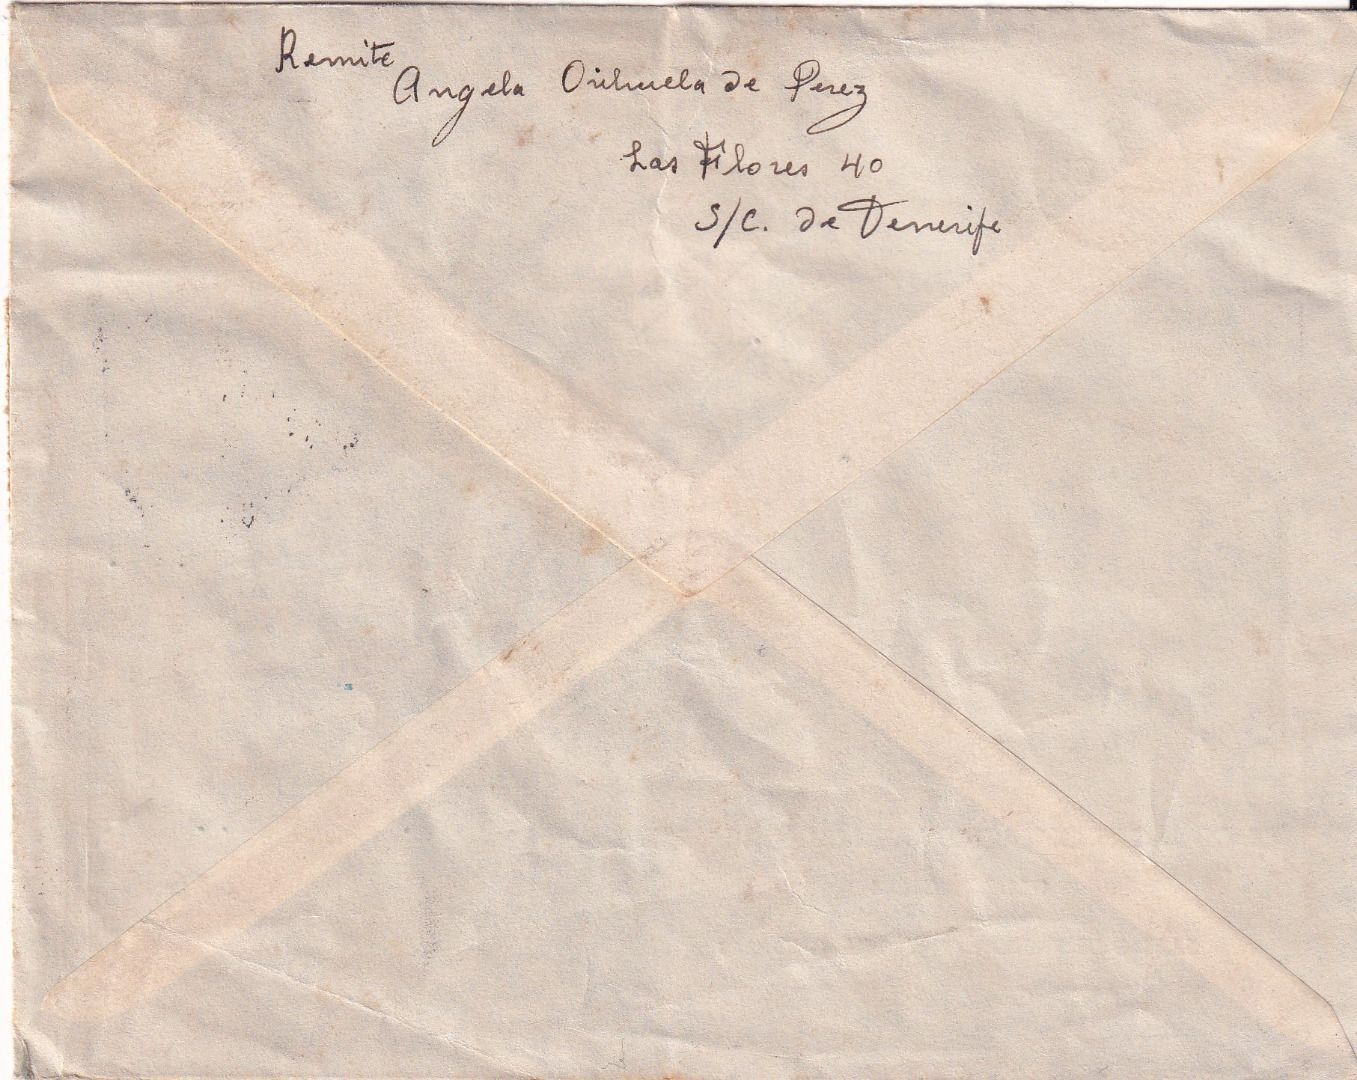 Remite
Angela Orihuela de Perez
Las Flores 40
S/C. de Tenerife